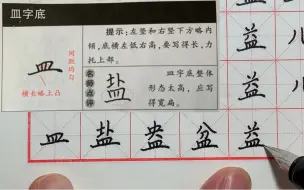 皿字底
提示：左竖和右竖下方略内
倾，底横左低右高，要写得长，力
托上部。
皿
间距均匀
横长略上凸
名师点评
盐
皿字底整体
形态太高，应写
得宽扁。
皿 盐 盎 盆 益
益 儿
益 儿
益 儿